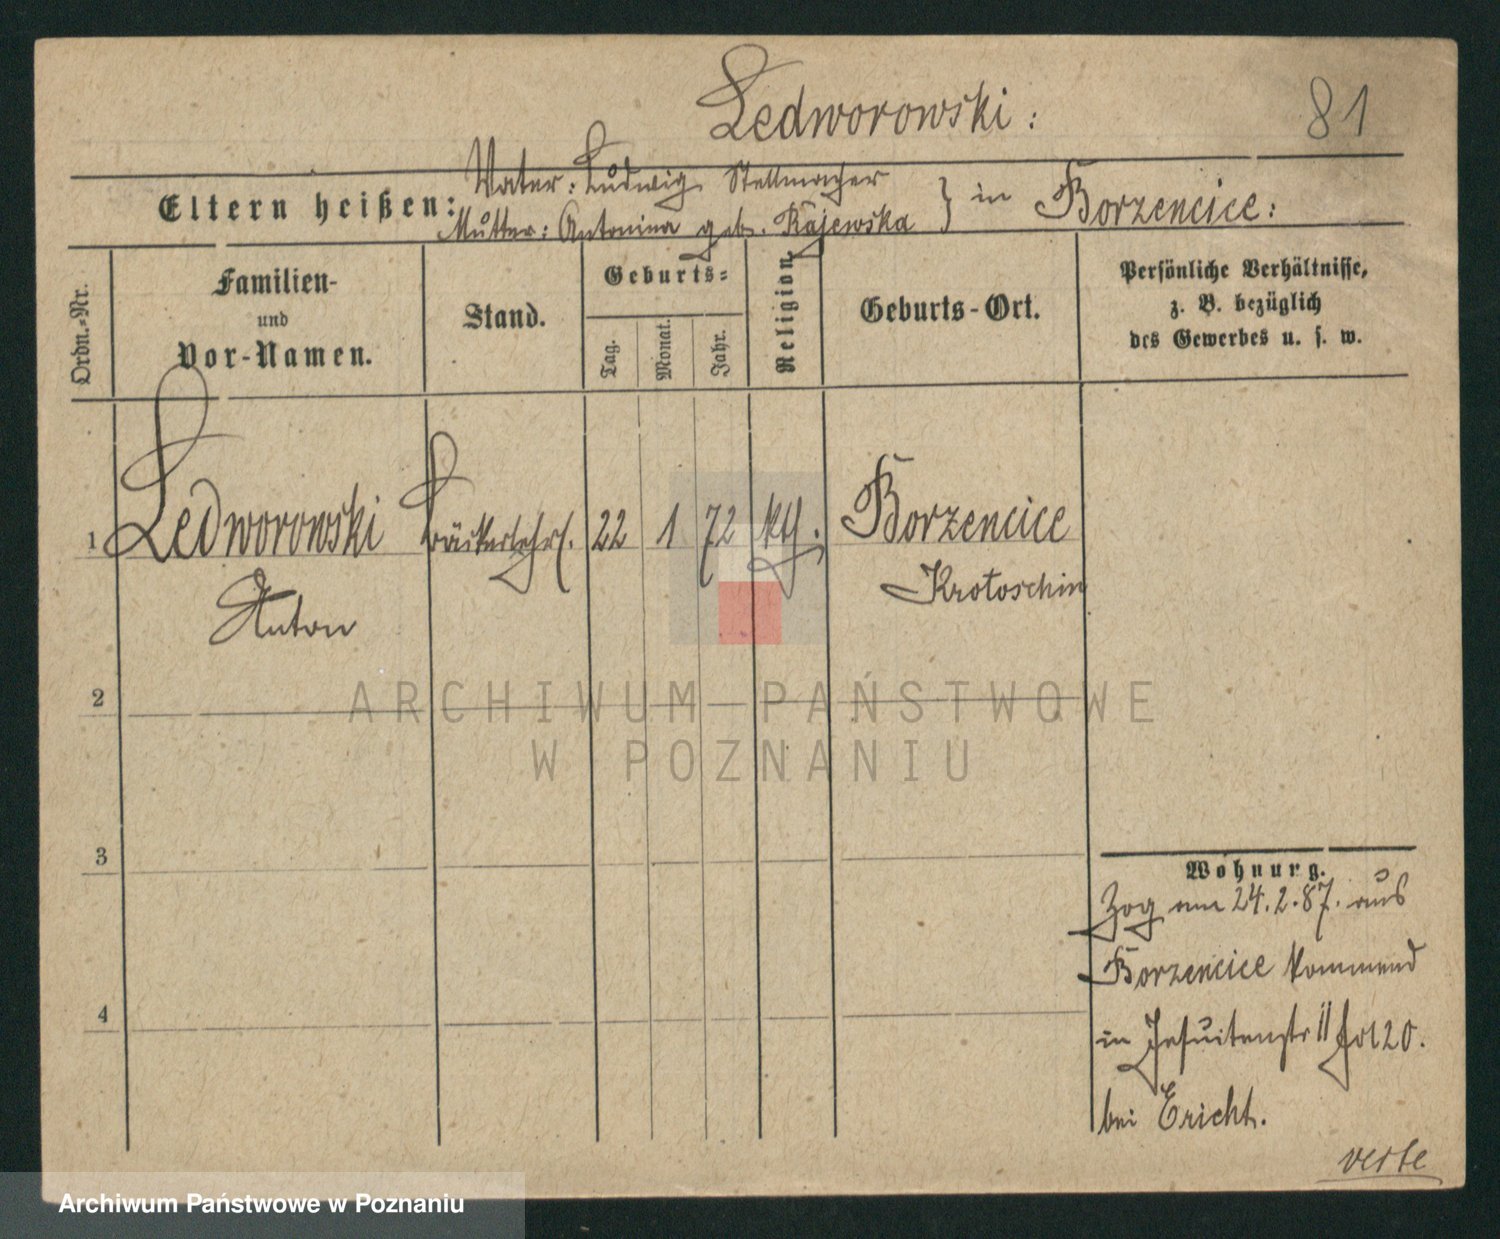 Ledworowski:
81
Eltern heißen:
Vater: Ludwig Stellmacher
Mutter: Antonina geb. Rajewska } in Borzencice:
Ordn.-Nr.
Familien-
und
Vor-Namen.
Stand.
Geburts-
Tag.
Monat.
Jahr.
Religion.
Geburts-Ort.
Persönliche Verhältnisse,
z. B. bezüglich
des Gewerbes u. s. w.
1 Ledworowski Bäckerlehrl. 22 1 72 kth. Borzencice
Anton Krotoschin
2
3
4
Wohnung.
Zog am 24.2.87. aus
Borzencice kommend
in Jesuitenstr 11 fol 20.
bei Ericht.
verte
ARCHIWUM PAŃSTWOWE
W POZNANIU
Archiwum Państwowe w Poznaniu